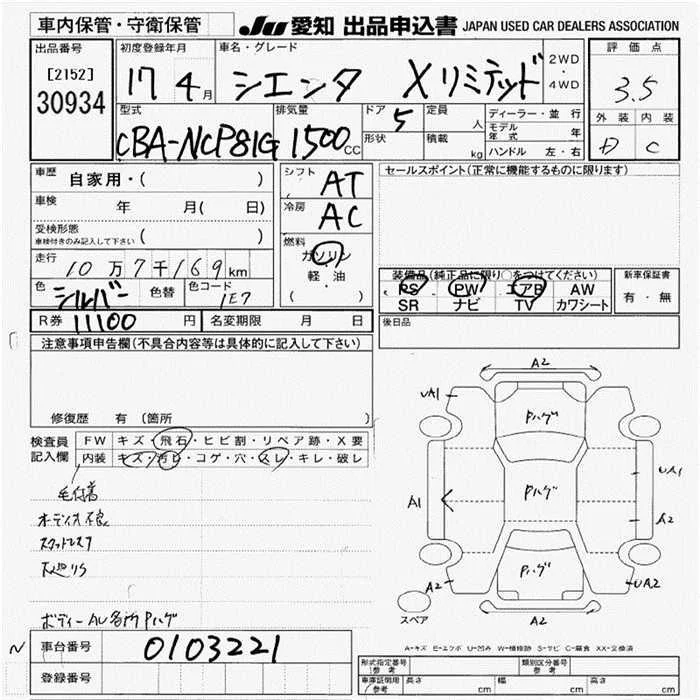 車内保管・守衛保管
JU 愛知 出品申込書 JAPAN USED CAR DEALERS ASSOCIATION
出品番号
[2152]
30934
初度登録年月
17 4月
車名・グレード
シエンタ Xリミテッド
2WD
・
4WD
評価点
3.5
外装 内装
D C
型式
CBA-NCP81G
排気量
1500cc
ドア
5
形状
定員
人
積載
kg
ディーラー・並行
モデル年式 年
ハンドル 左・右
車歴
自家用・( )
車検
年 月( 日)
受検形態
車検付きのみ記入して下さい ( )
走行
10万7千169km
色
シルバー
色替
色コード
1E7
シフト
AT
冷房
AC
燃料
ガソリン
軽・油
( )
セールスポイント(正常に機能するものに限ります)
装備品(純正品に限り○をつけてください)
PS PW エアB AW
SR ナビ TV カワシート
新車保証書
有・無
R券 11100 円
名変期限 月 日
後日品
注意事項申告欄(不具合内容等は具体的に記入して下さい)
修復歴 有 (箇所 )
検査員
記入欄
FW キズ・飛石・ヒビ割・リペア跡・X要
内装 キズ・汚レ・コゲ・穴・スレ・キレ・破レ
毛付着
オーディオ不良
スタッドレス7
下廻りS
ボディーAU各所Pハゲ
A2
UA1
Pハゲ
A1
Pハゲ
UA1
A2
Pハゲ
A2
UA2
A2
スペア
N
車台番号
0103221
登録番号
A-キズ E-エクボ U-凹み W-補修跡 S-サビ C-腐食 XX-交換済
形式指定番号
参考
類別区分番号
参考
車庫証明用
(参考)
長さ cm
幅 cm
高さ cm